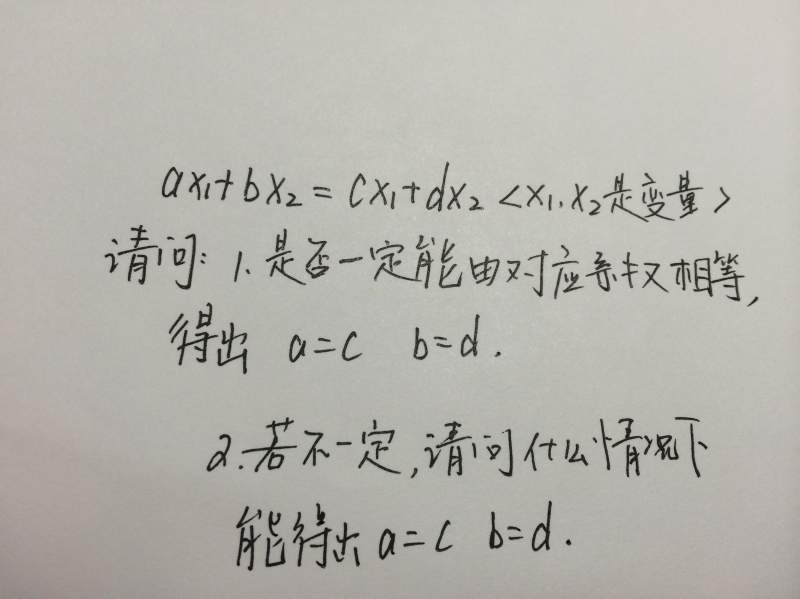 ax₁+bx₂=cx₁+dx₂<x₁.x₂是变量>
请问:1.是否一定能由对应系数相等,
得出 a=c b=d.
2.若不一定,请问什么情况下
能得出 a=c b=d.